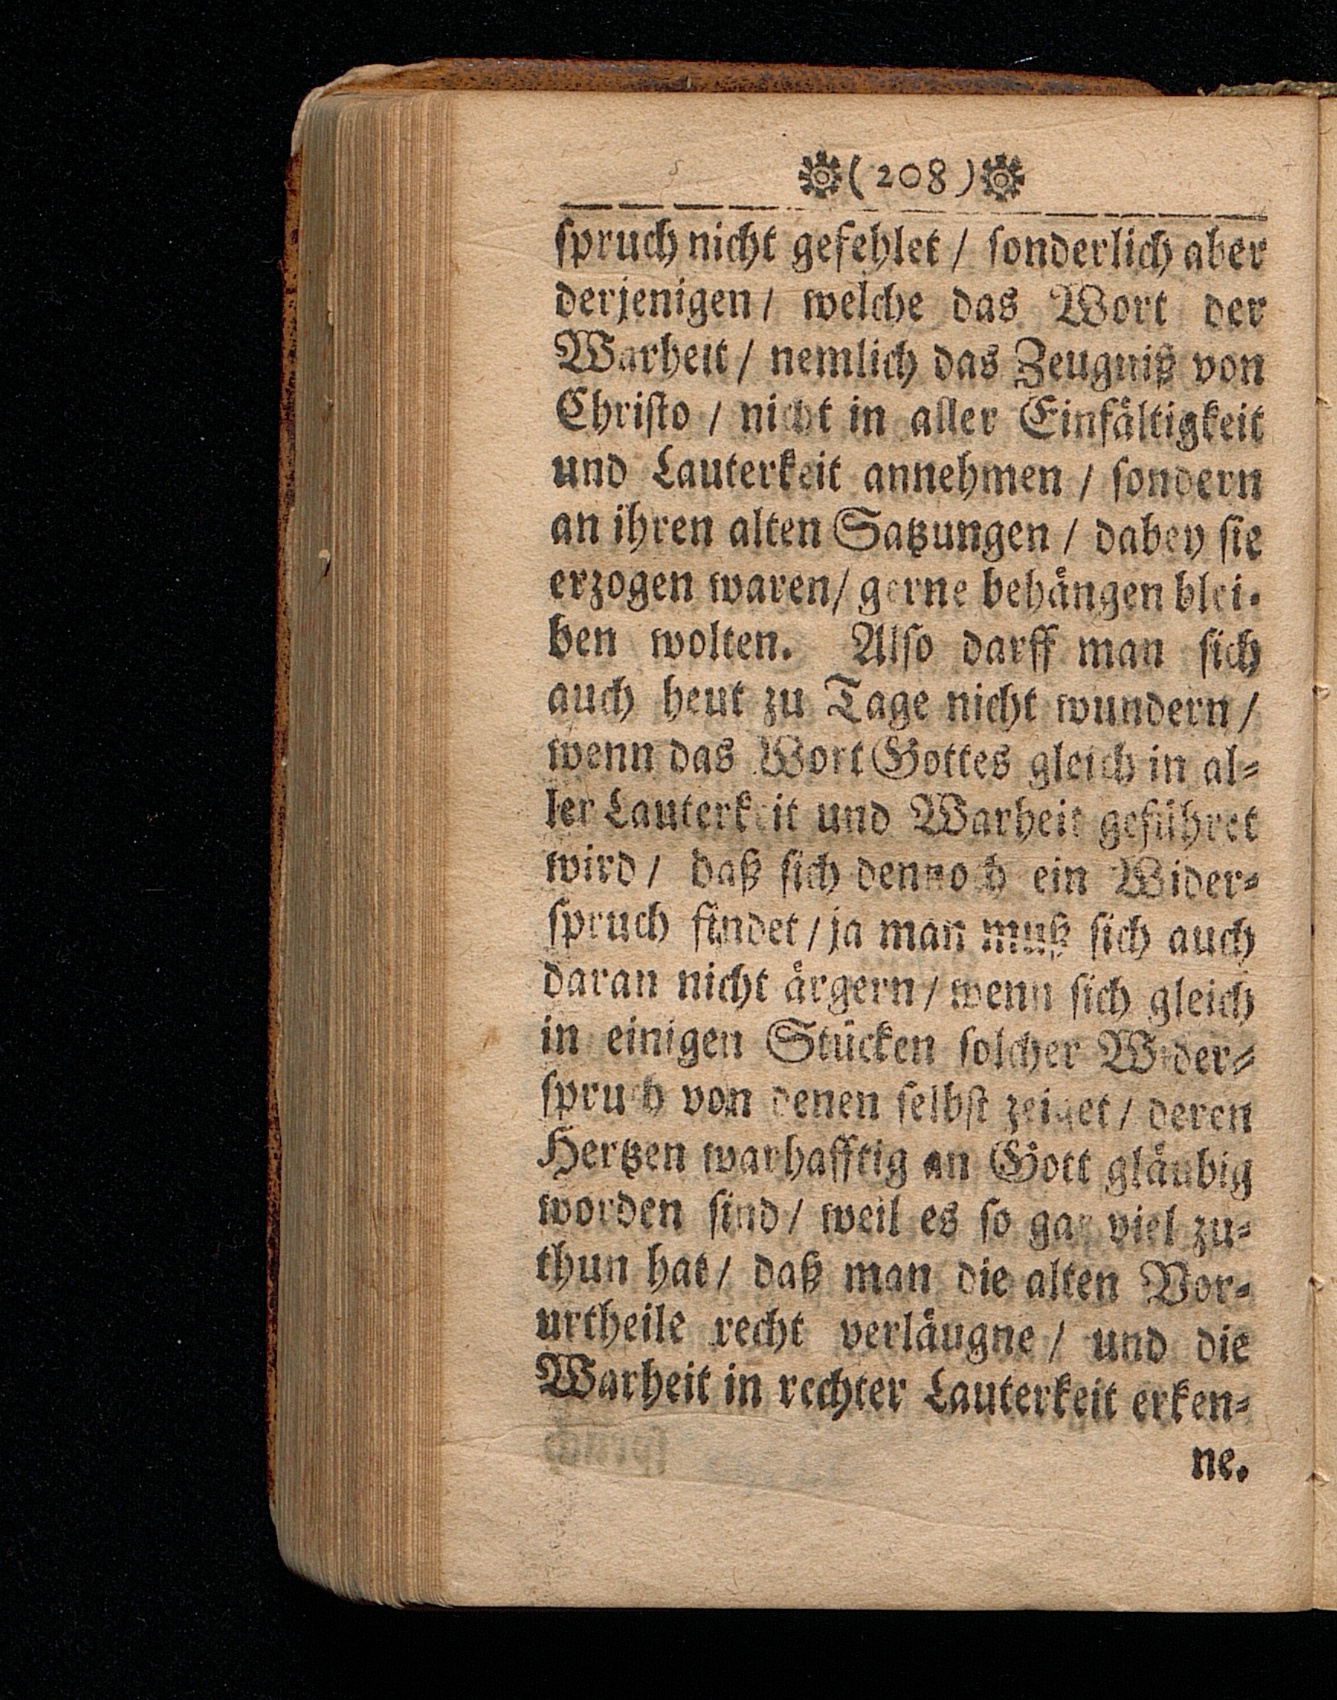 (208)
spruch nicht gefehlet / sonderlich aber
derjenigen / welche das Wort der
Warheit / nemlich das Zeugniß von
Christo / nicht in aller Einfältigkeit
und Lauterkeit annehmen / sondern
an ihren alten Satzungen / dabey sie
erzogen waren / gerne behängen blei-
ben wolten. Also darff man sich
auch heut zu Tage nicht wundern /
wenn das Wort Gottes gleich in al-
ler Lauterkeit und Warheit geführet
wird / daß sich dennoch ein Wider-
spruch findet / ja man muß sich auch
daran nicht ärgern / wenn sich gleich
in einigen Stücken solcher Wider-
spruch von denen selbst zeiget / deren
Hertzen warhafftig an Gott gläubig
worden sind / weil es so gar viel zu-
thun hat / daß man die alten Vor-
urtheile recht verläugne / und die
Warheit in rechter Lauterkeit erken-
ne.